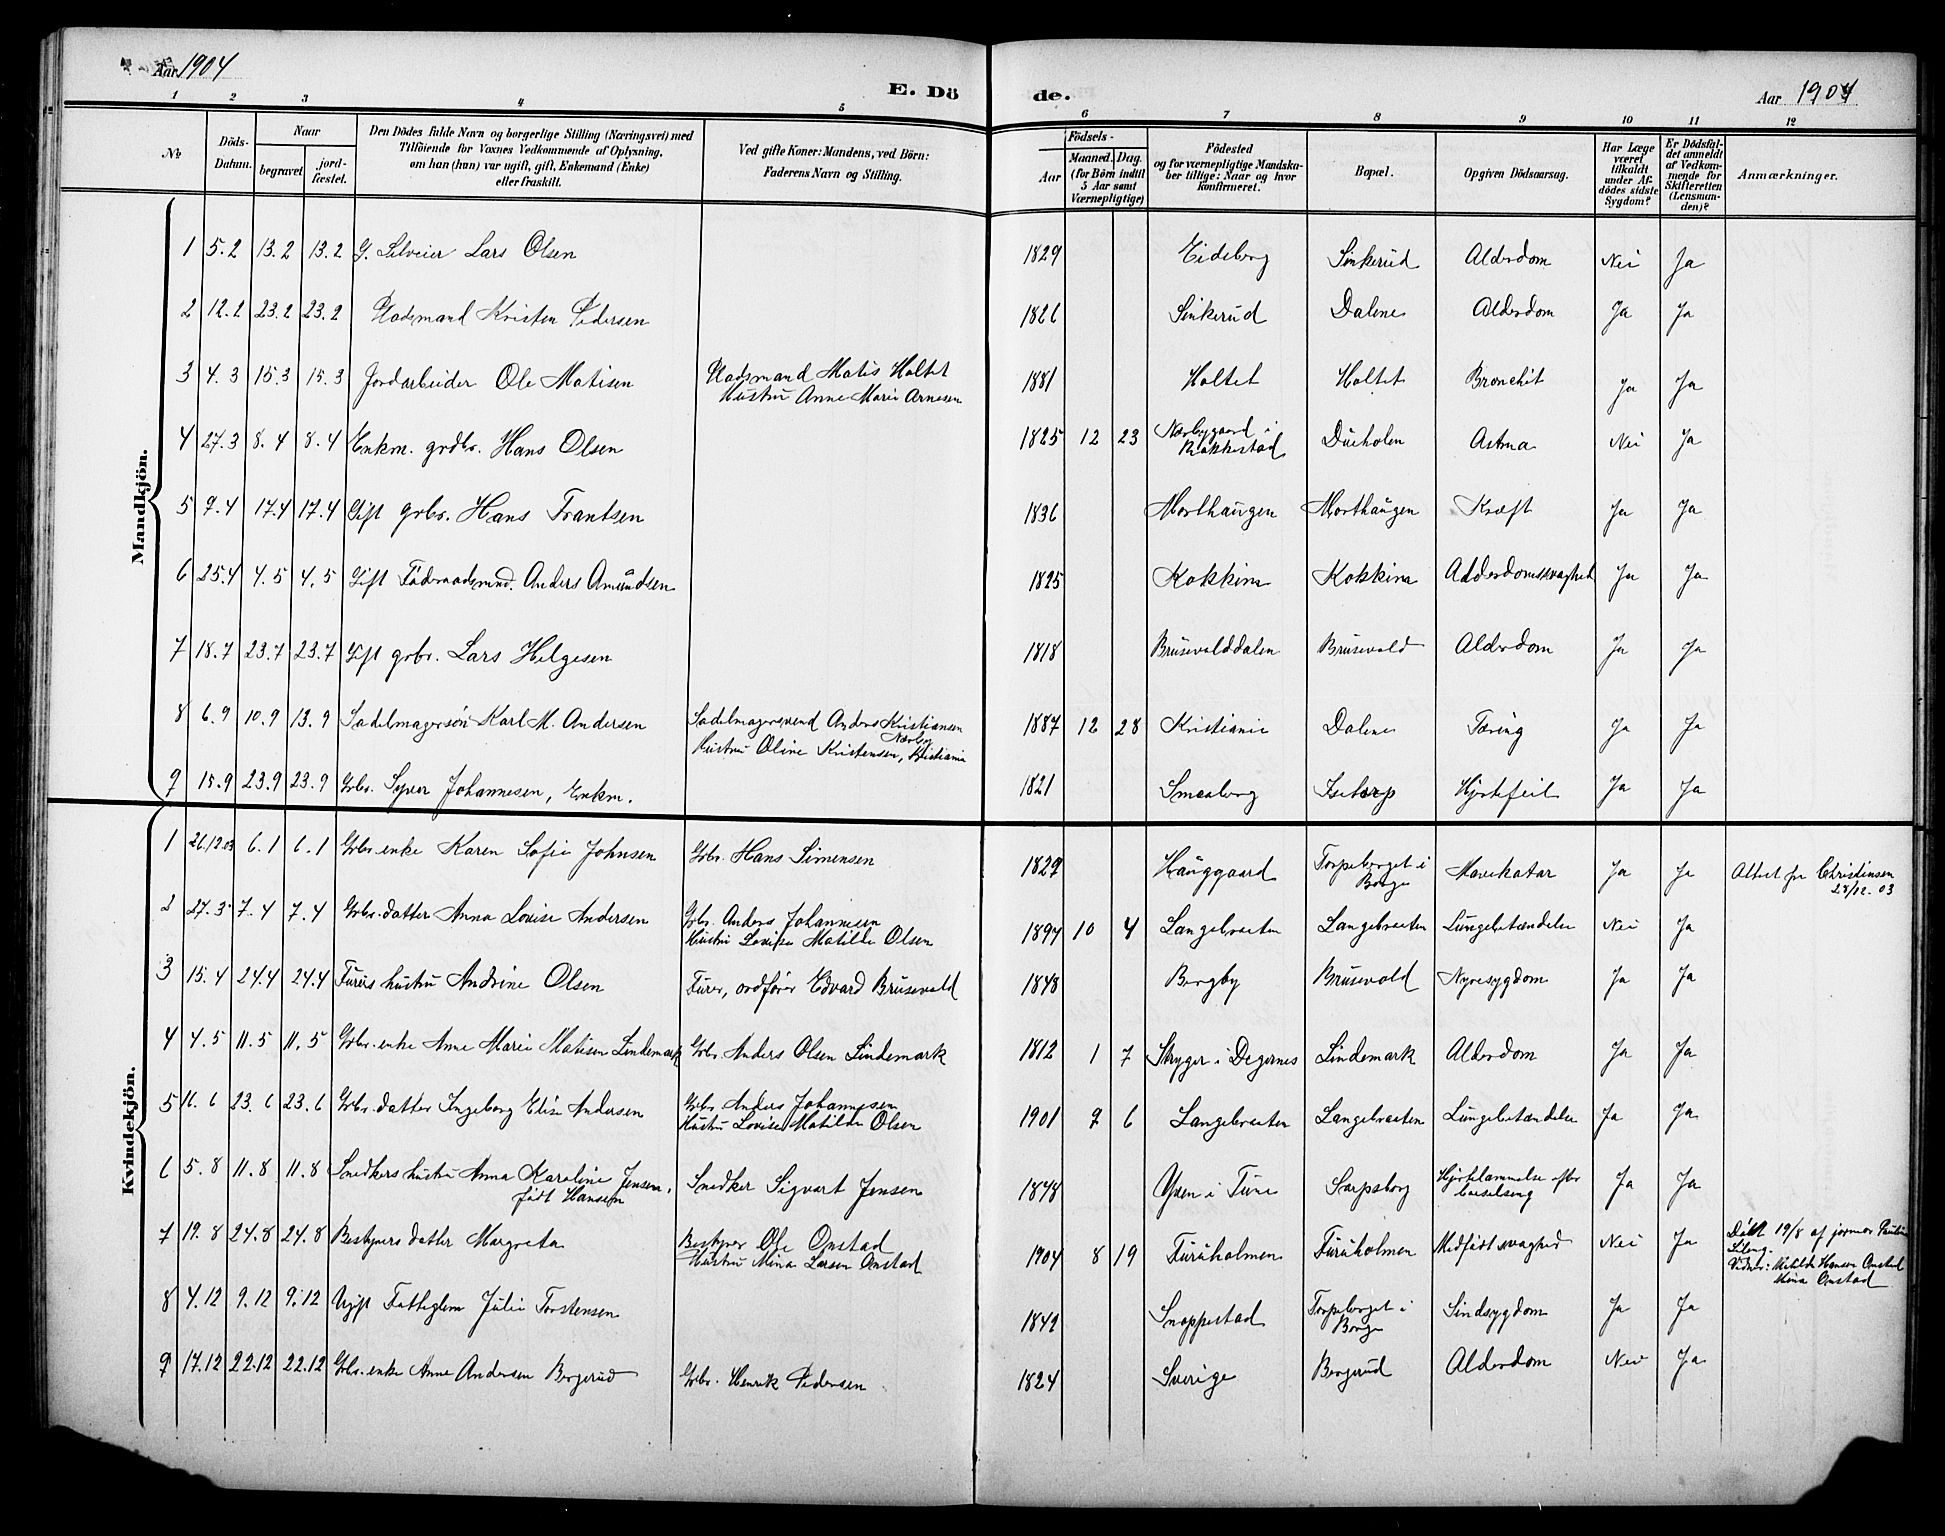 Aar 1904
E. Döde.
Aar 1904
1 2 3 4 5 6 7 8 9 10 11 12
№
Döds-Datum.
Naar
begravet
jord-fæstet.
Den Dödes fulde Navn og borgerlige Stilling (Næringsvei) med
Tilföiende for Voxnes Vedkommende af Oplysning,
om han (hun) var ugift, gift, Enkemand (Enke)
eller fraskilt.
Ved gifte Koner: Mandens, ved Börn:
Faderens Navn og Stilling.
Födsels-
Aar
Maaned. Dag.
(for Börn indtil
5 Aar samt
Værnepligtige)
Födested
og for værnepligtige Mandska-
ber tillige: Naar og hvor
konfirmeret.
Bopæl.
Opgiven Dödsaarsag.
Har Læge
været
tilkaldt
under Af-
dödes sidste
Sygdom?
Er Dödsfal-
det anmeldt
af Vedkom-
mende for
Skifteretten
(Lensman-
den)?
Anmærkninger.
Mandkjön.
1 5.2 13.2 13.2 G. Selveier Lars Olsen 1829 Eideberg Sinkerud Alderdom Nei Ja
2 12.2 23.2 23.2 Pladsmand Kristen Pedersen 1826 Sinkerud Dalene Alderdom Ja Ja
3 4.3 15.3 15.3 Jordarbeider Ole Matisen Pladsmand Matis Holtet 1881 Holtet Holtet Bronchit Ja Ja
Hustru Anne Marie Arnesen
4 27.3 8.4 8.4 Enkm. grdbr. Hans Olsen 1825 12 23 Nærbygaard i Dueholen Astma Nei Ja
Rakkestad
5 9.4 17.4 17.4 Gift grbr. Hans Frantsen 1836 Morthaugen Morthaugen Kræft Ja Ja
6 25.4 4.5 4.5 Gift Föderaadsmnd. Anders Amundsen 1825 Kokkim Kokkim Alderdomssvaghed Ja Ja
7 18.7 23.7 23.7 Gift grbr. Lars Helgesen 1818 Brusevolddalen Brusevold Alderdom Ja Ja
8 6.9 10.9 13.9 Sadelmagersön Karl M. Andersen Sadelmagersvend Anders Kristiansen 1887 12 28 Kristiania Dalene Tæring Ja Ja
Nærby
Hustru Oline Kristensen, Kristiania
9 15.9 23.9 23.9 Grbr. Syver Johannesen, Enkm. 1821 Smeaberg Isetorp Hjertefeil Ja Ja
Kvindekjön.
1 26.12.03 6.1 6.1 Grbr. enke Karen Sofie Johnsen Grbr. Hans Simensen 1829 Hauggaard Torpeberget i Mavekatar Ja Ja Attest fra Christensen
Borge 28/12.03
2 27.3 7.4 7.4 Grbr. datter Anna Lovise Andersen Grbr. Anders Johannesen 1894 10 4 Langebraaten Langebraaten Lungebetændelse Nei Ja
Hustru Lovise Matilde Olsen
3 15.4 24.4 24.4 Furers hustru Andrine Olsen Furer, ordförer Edvard Brusevold 1848 Bergby Brusevold Nyresygdom Ja Ja
4 4.5 11.5 11.5 Grbr. enke Anne Marie Matisen Lindemark Grbr. Anders Olsen Lindemark 1812 1 7 Stryger i Degernes Lindemark Alderdom Ja Ja
5 16.6 23.6 23.6 Grbr. datter Ingeborg Elise Andersen Grbr. Anders Johannesen 1901 9 6 Langebraaten Langebraaten Lungebetændelse Ja Ja
Hustru Lovise Matilde Olsen
6 5.8 11.8 11.8 Snedkers hustru Anna Karoline Jensen, Snedker Sigvart Jensen 1848 Yven i Tune Sarpsborg Hjertelammelse efter Ja Ja
födt Hansen barselseng
7 19.8 24.8 24.8 Bestyrers datter Margreta Bestyrer Ole Onstad 1904 8 19 Furuholmen Furuholmen Medfödt svaghed Nei Ja Döbt 19/8 af jormor Pauline
Hustru Mina Larsen Onstad Vidner: Matilde Hansen Onstad
Mina Onstad
8 4.12 9.12 9.12 Ugift Fattiglem Julie Torstensen 1842 Snoppestad Torpeberget i Sindsygdom Ja Ja
Borge
9 17.12 22.12 22.12 Grbr. enke Anne Andersen Bergerud Grbr. Henrik Pedersen 1824 Sverige Bergerud Alderdom Nei Ja